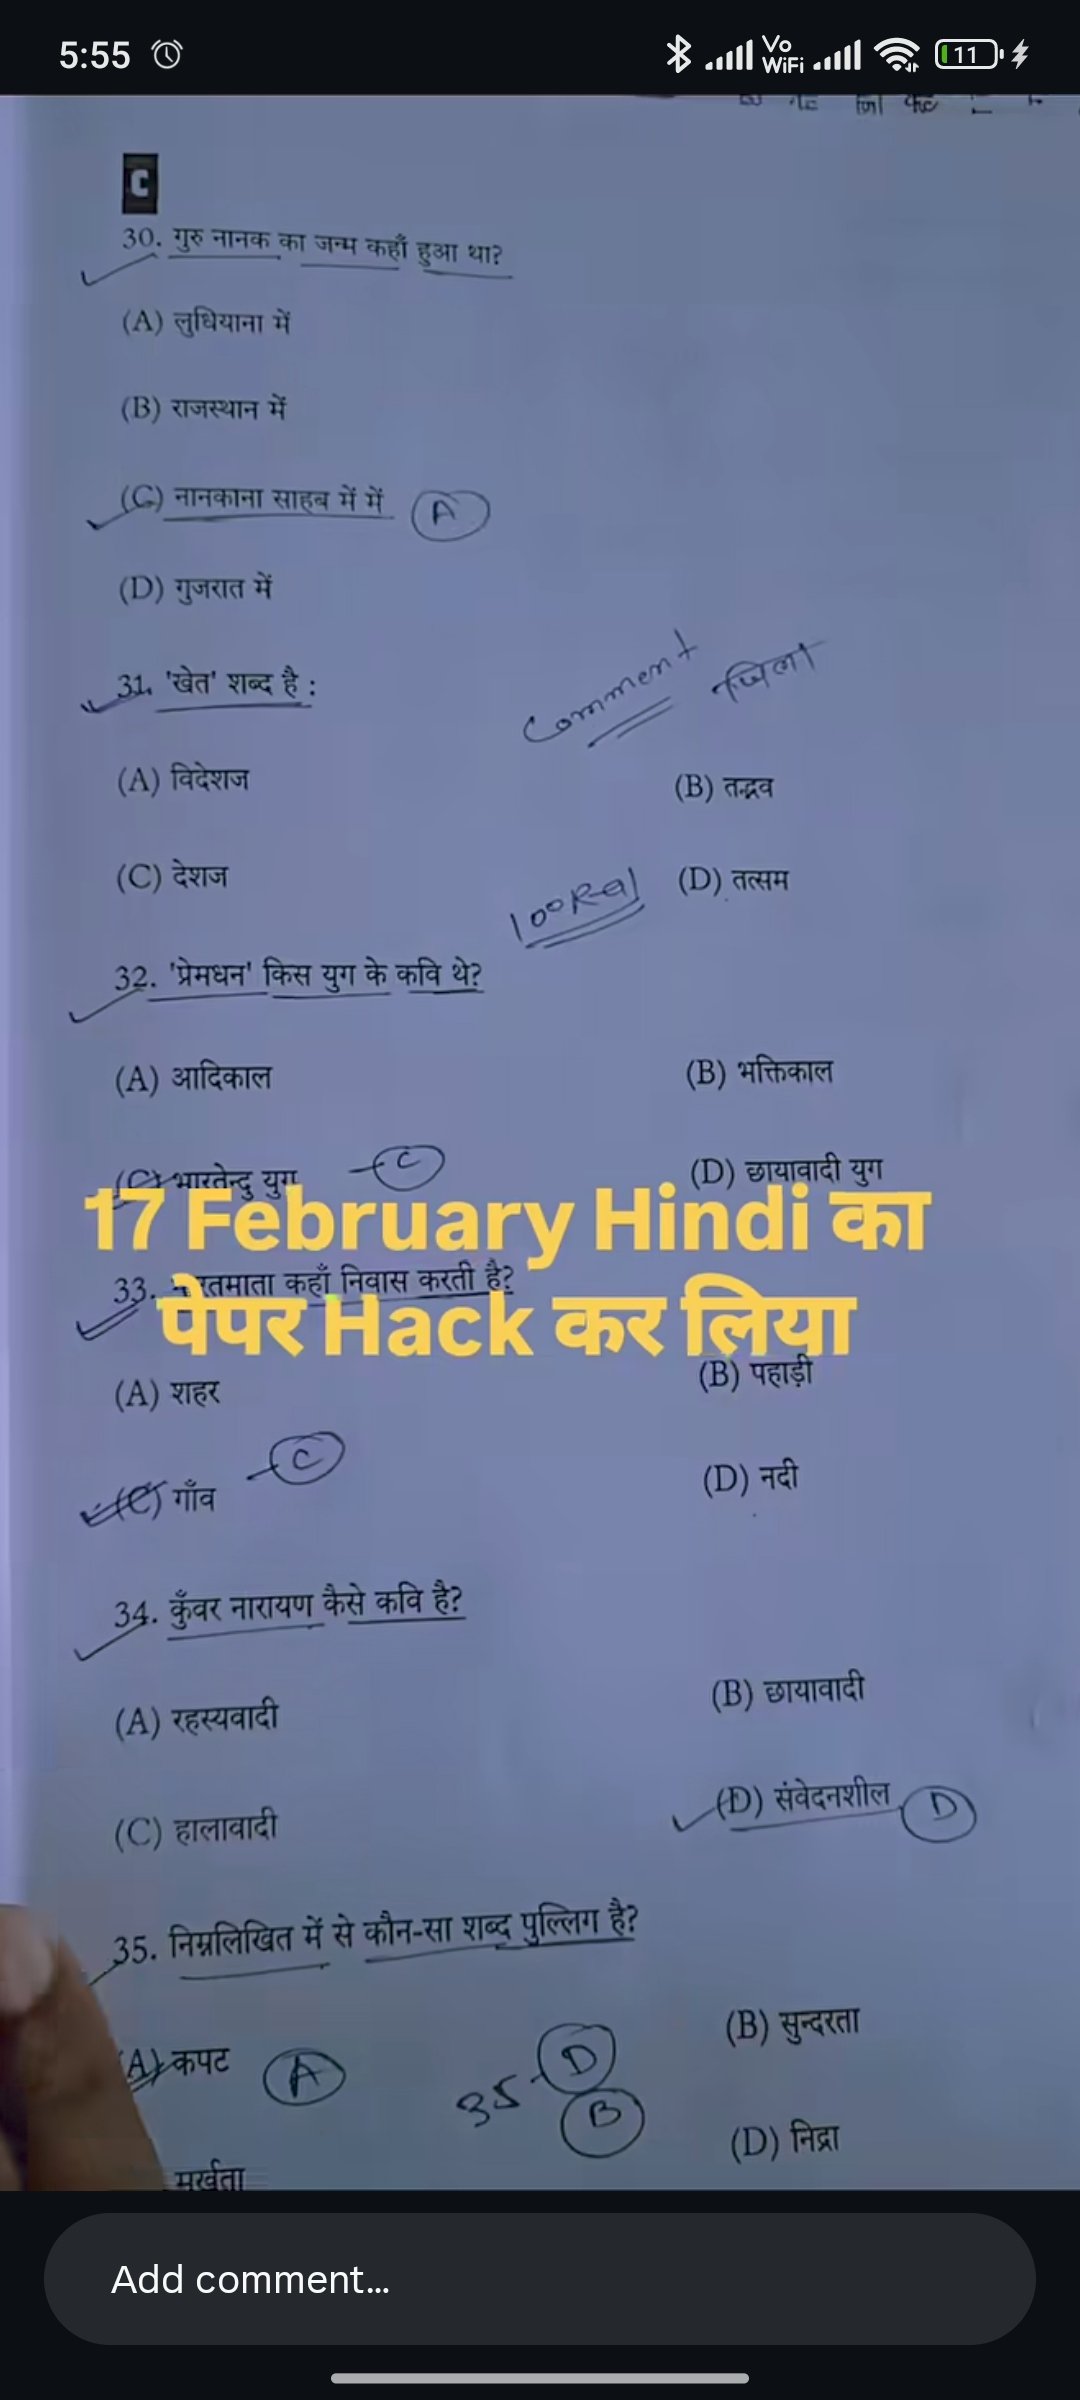 5:55
Vo
WiFi
11
C
30. गुरु नानक का जन्म कहाँ हुआ था?
(A) लुधियाना में
(B) राजस्थान में
(C) नानकाना साहब में में A
(D) गुजरात में
Comment जिला
31. 'खेत' शब्द है :
(A) विदेशज
(B) तद्भव
(C) देशज
(D) तत्सम
32. 'प्रेमधन' किस युग के कवि थे?
(A) आदिकाल
(B) भक्तिकाल
(C) भारतेन्दु युग C
(D) छायावादी युग
17 February Hindi का
33. कहाँ निवास करती है?
पेपर Hack कर लिया
(A) शहर
(B) पहाड़ी
(C) गाँव C
(D) नदी
34. कुँवर नारायण कैसे कवि है?
(A) रहस्यवादी
(B) छायावादी
(C) हालावादी
(D) संवेदनशील D
35. निम्नलिखित में से कौन-सा शब्द पुल्लिग है?
(A) कपट A
(B) सुन्दरता
35 D
B
(D) निद्रा
मूर्खता
Add comment...